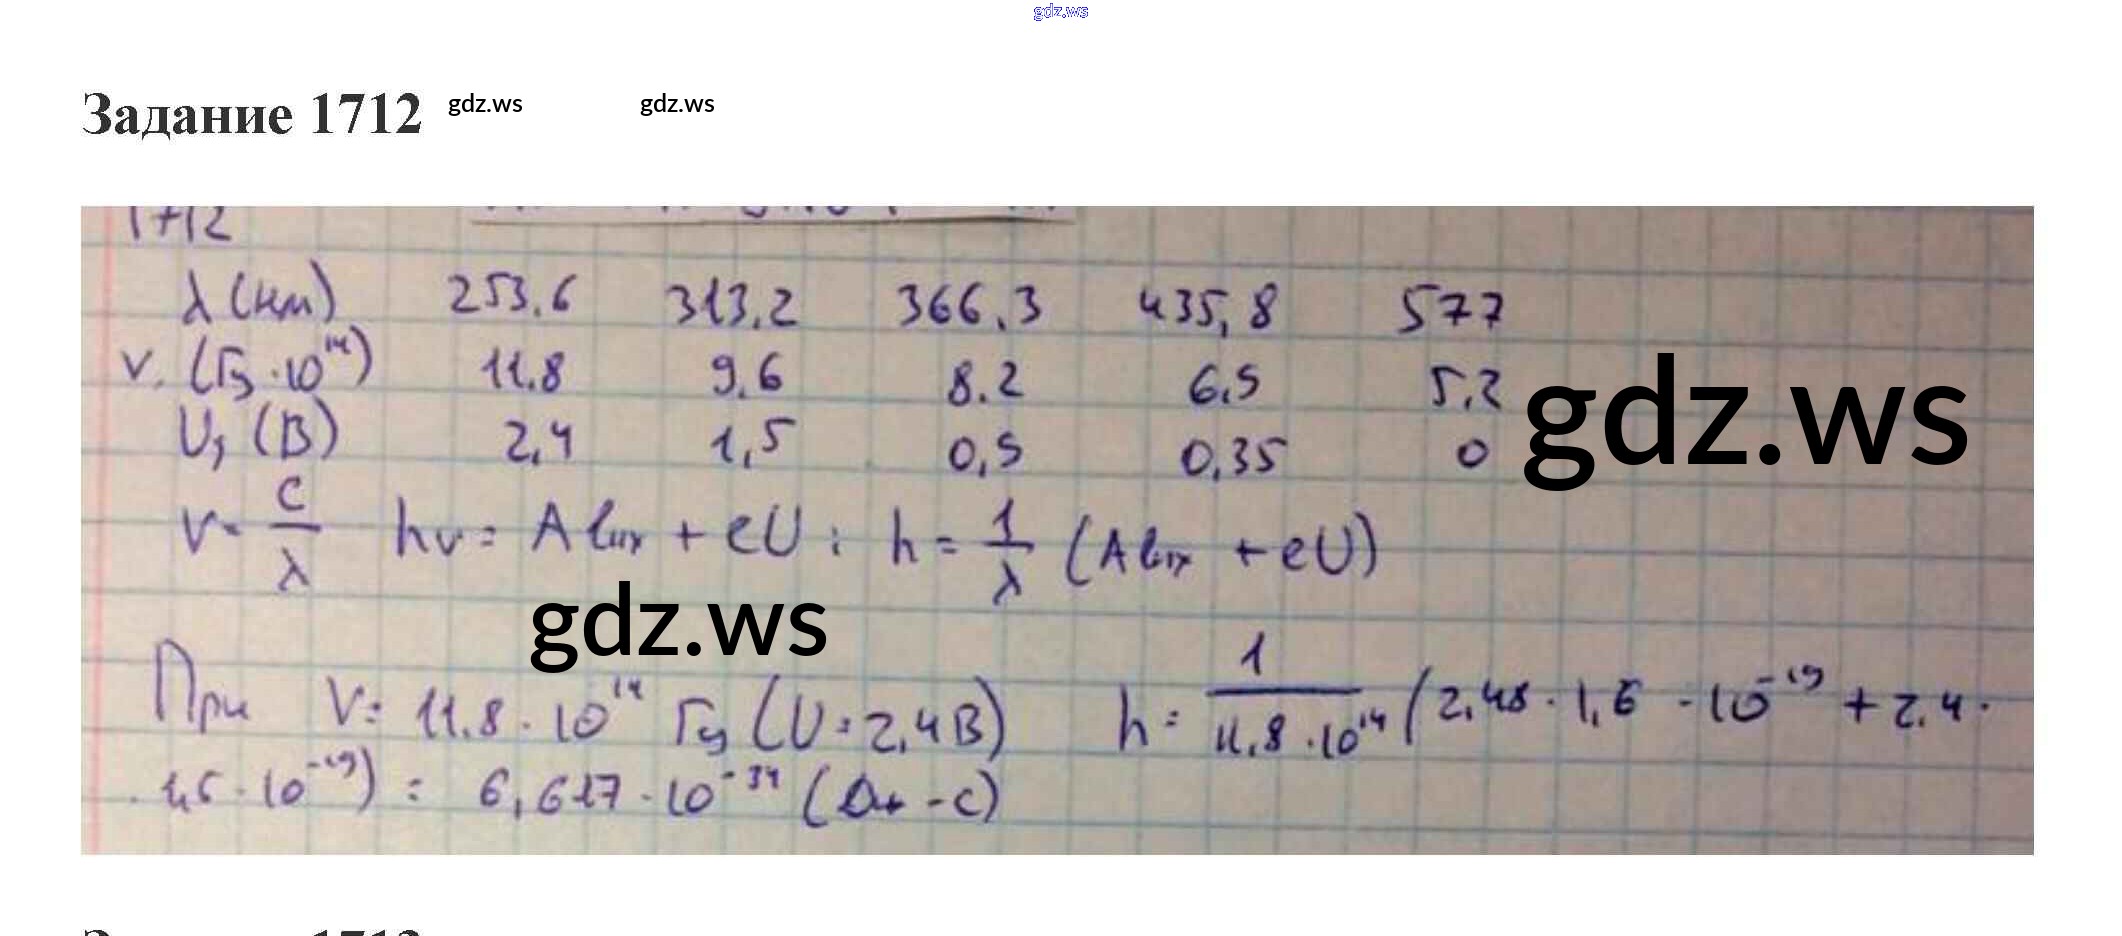 gdz.ws
Задание 1712 gdz.ws gdz.ws
1712
λ (нм) 253.6 313,2 366,3 435,8 577
ν. (Гц · 10¹⁴) 11.8 9,6 8.2 6,9 5,2
U₃ (В) 2,4 1,5 0,9 0,35 0
gdz.ws
ν = c/λ hν = A вых + eU ; h = 1/λ (A вых + eU)
gdz.ws
При ν = 11.8 · 10¹⁴ Гц (U = 2,4 В) h = 1/11,8 · 10¹⁴ (2,48 · 1,6 · 10⁻¹⁹ + 2,4 ·
· 1,6 · 10⁻¹⁹) = 6,617 · 10⁻³⁴ (Дж · с)